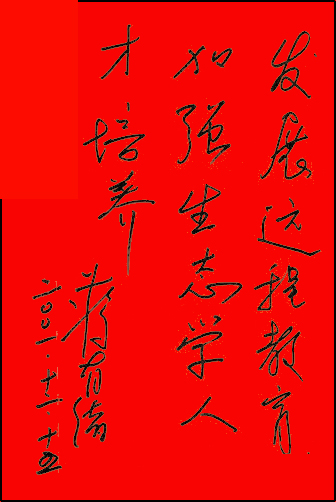 发展远程教育
加强生态学人
才培养
蒋有绪
二〇〇一·十二·十五